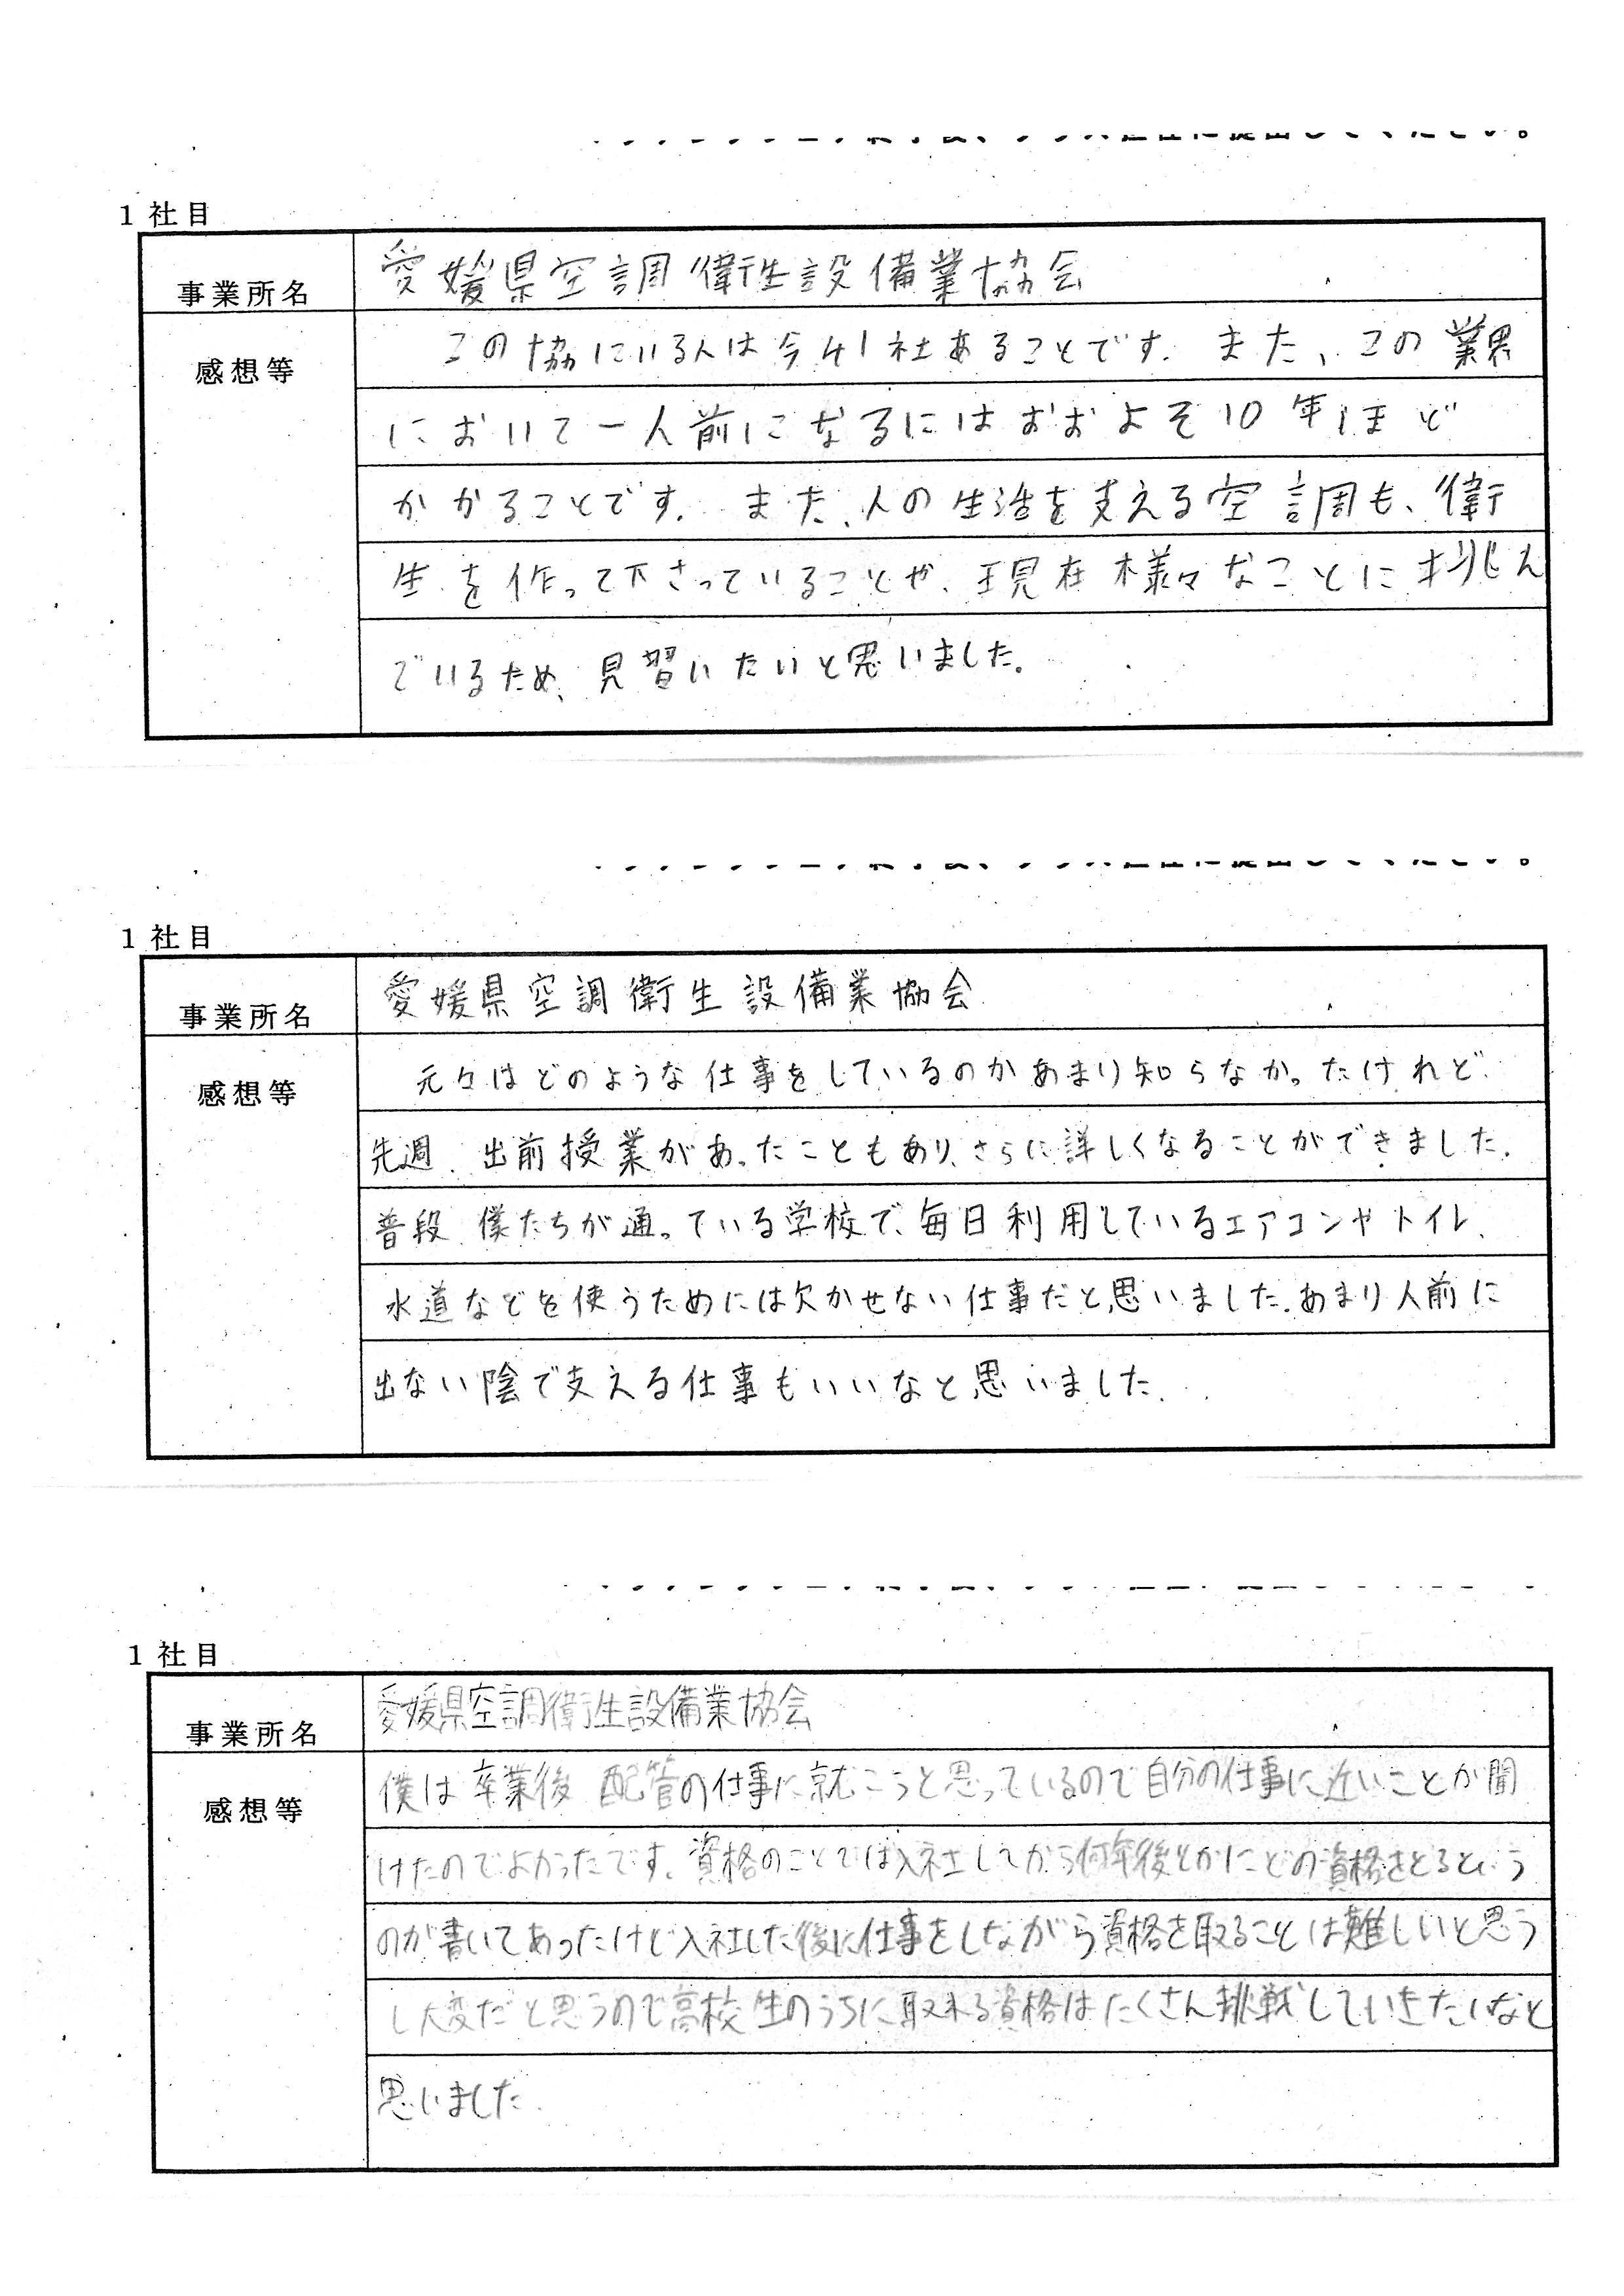 1 社目
事業所名
愛媛県空調衛生設備業協会
感想等
この協にいる人は今41社あることです。また、この業界
において一人前になるにはおおよそ10年ほど
かかることです。また、人の生活を支える空調も、衛
生を作って下さっていることや、現在様々なことに挑ん
でいるため、見習いたいと思いました。
1 社目
事業所名
愛媛県空調衛生設備業協会
感想等
元々はどのような仕事をしているのかあまり知らなかったけれど
先週、出前授業があったこともあり、さらに詳しくなることができました。
普段、僕たちが通っている学校で、毎日利用しているエアコンやトイレ、
水道などを使うためには欠かせない仕事だと思いました。あまり人前に
出ない陰で支える仕事もいいなと思いました。
1 社目
事業所名
愛媛県空調衛生設備業協会
感想等
僕は卒業後 配管の仕事に就こうと思っているので自分の仕事に近いことが聞
けたのでよかったです。資格のことでは入社してから何年後とかにどの資格をとるという
のが書いてあったけど入社した後に仕事をしながら資格を取ることは難しいと思う
し大変だと思うので高校生のうちに取れる資格はたくさん挑戦していきたいなと
思いました。